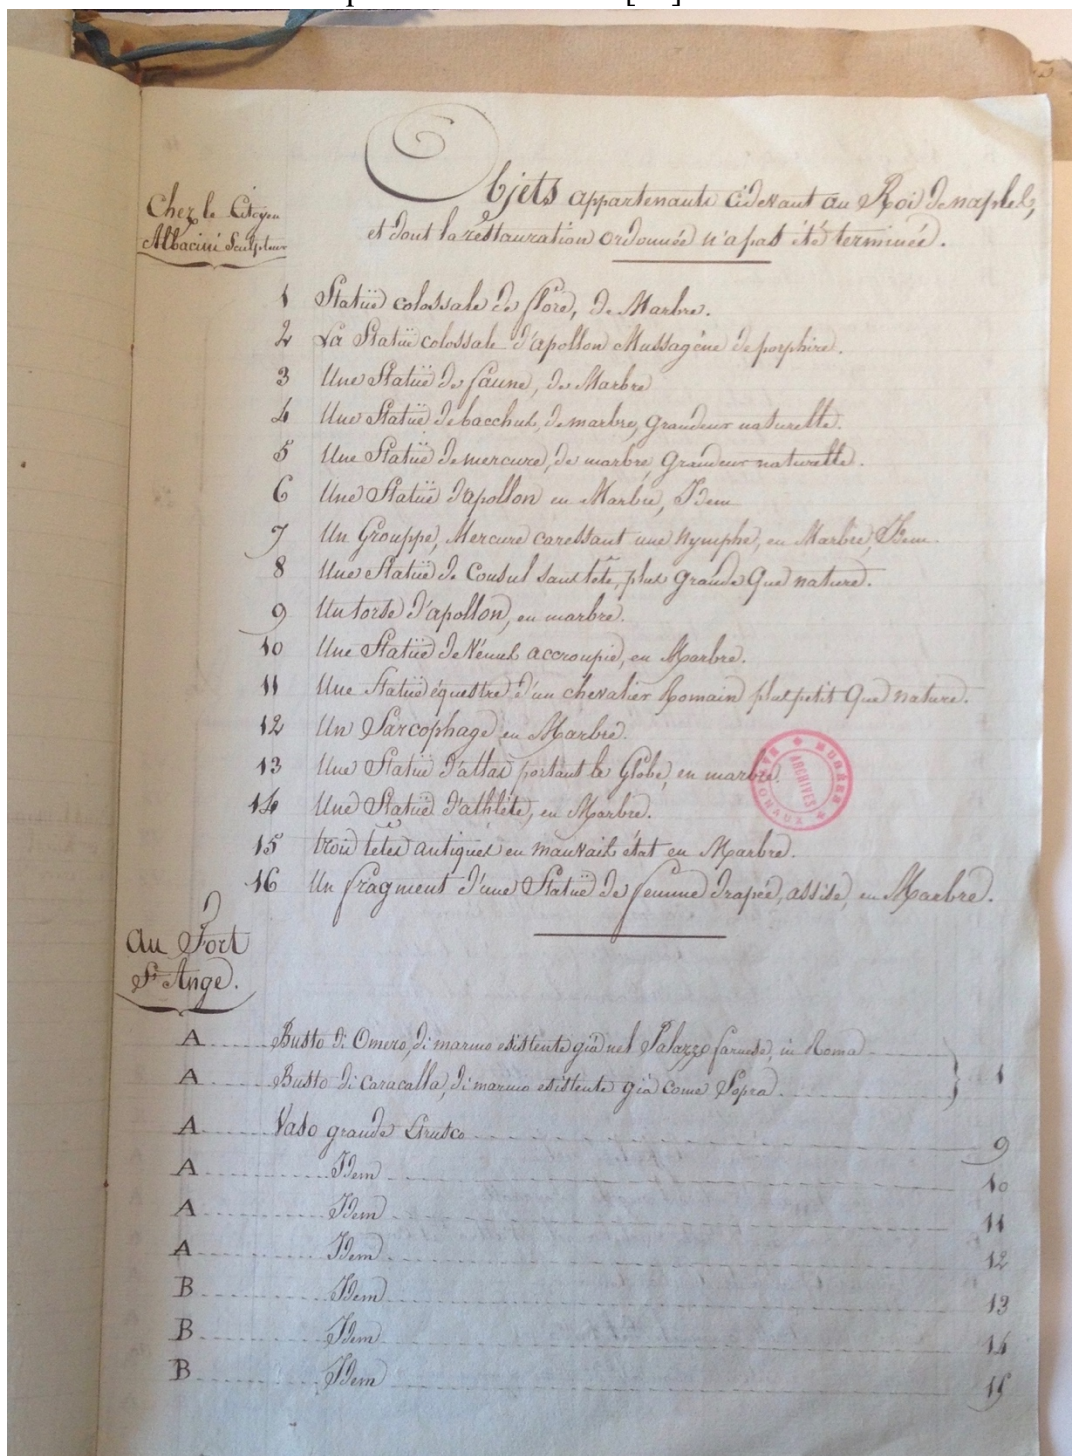 Chez le Citoyen
Albacini Sculpteur
Objets appartenants cidevant au Roi de naples,
et dont la réstauration ordonnée n'a pas été terminée.
1 Statuë colossale de flore, de Marbre.
2 La Statuë colossale d'apollon Mussagène de porphire.
3 Une Statuë de faune, de Marbre
4 Une Statuë de bacchus, de marbre, grandeur naturelle.
5 Une Statuë de mercure, de marbre, grandeur naturelle.
6 Une Statuë d'apollon en Marbre, Idem
7 Un Grouppe, Mercure caressant une Nymphe, en Marbre, Idem.
8 Une Statuë de Consul sans tête, plus grande que nature.
9 Un torse d'apollon, en marbre.
10 Une Statuë de Vénus accroupie, en Marbre.
11 Une Statuë équestre d'un chevalier Romain plus petit que nature.
12 Un Sarcophage en Marbre.
13 Une Statuë d'atlas portant le Globe, en marbre.
14 Une Statuë d'athlète, en Marbre.
15 trois têtes antiques en mauvais état en Marbre.
16 Un fragment d'une Statuë de femme drapée, assise, en Marbre.
MUSÉES
ARCHIVES
Au Fort
St. Ange.
A Busto di Omero, di marmo esistente già nel Palazzo farnese, in Roma
A Busto di Caracalla, di marmo esistente già come Sopra } 1
A Vaso grande Etrusco 9
A Idem 10
A Idem 11
A Idem 12
B Idem 13
B Idem 14
B Idem 15